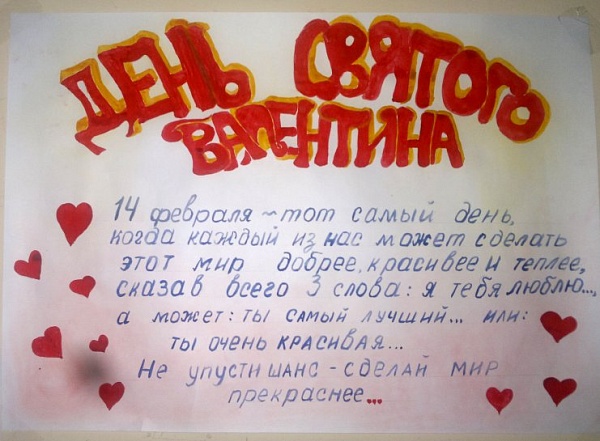 ДЕНЬ СВЯТОГО
ВАЛЕНТИНА
14 февраля ~ тот самый день,
когда каждый из нас может сделать
этот мир добрее, красивее и теплее,
сказав всего 3 слова: я тебя люблю...,
а может: ты самый лучший... или:
ты очень красивая...
Не упусти шанс - сделай мир
прекраснее...